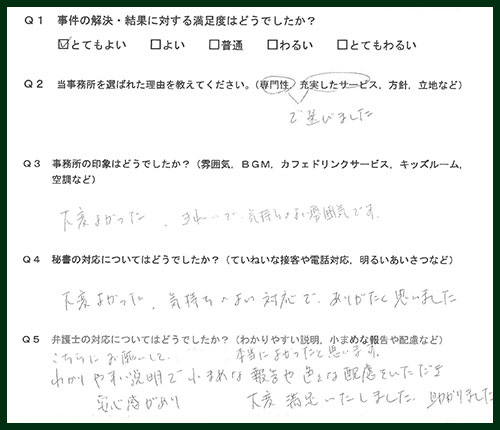 Q1 事件の解決・結果に対する満足度はどうでしたか？
☑とてもよい □よい □普通 □わるい □とてもわるい
Q2 当事務所を選ばれた理由を教えてください。（専門性，充実したサービス，方針，立地など）
で選びました
Q3 事務所の印象はどうでしたか？（雰囲気，BGM，カフェドリンクサービス，キッズルーム，
空調など）
大変よかった，きれいで，気持ちよい雰囲気です．
Q4 秘書の対応についてはどうでしたか？（ていねいな接客や電話対応，明るいあいさつなど）
大変よかった，気持ちのよい対応で，ありがたく思いました
Q5 弁護士の対応についてはどうでしたか？（わかりやすい説明，小まめな報告や配慮など）
こちらにお願いして， 本当によかったと思います．
わかりやすい説明で小まめな報告や色々な配慮をいただき
安心感があり 大変満足いたしました．助かりました